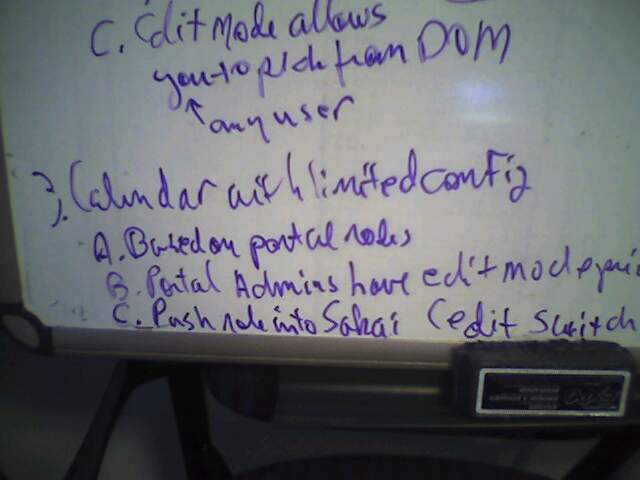 C. Edit Mode allows
you to pick from DOM
↑ any user
3. Calendar with limited config
A. Based on portal roles
B. Portal Admins have edit mode
C. Push role into Sakai (edit switch